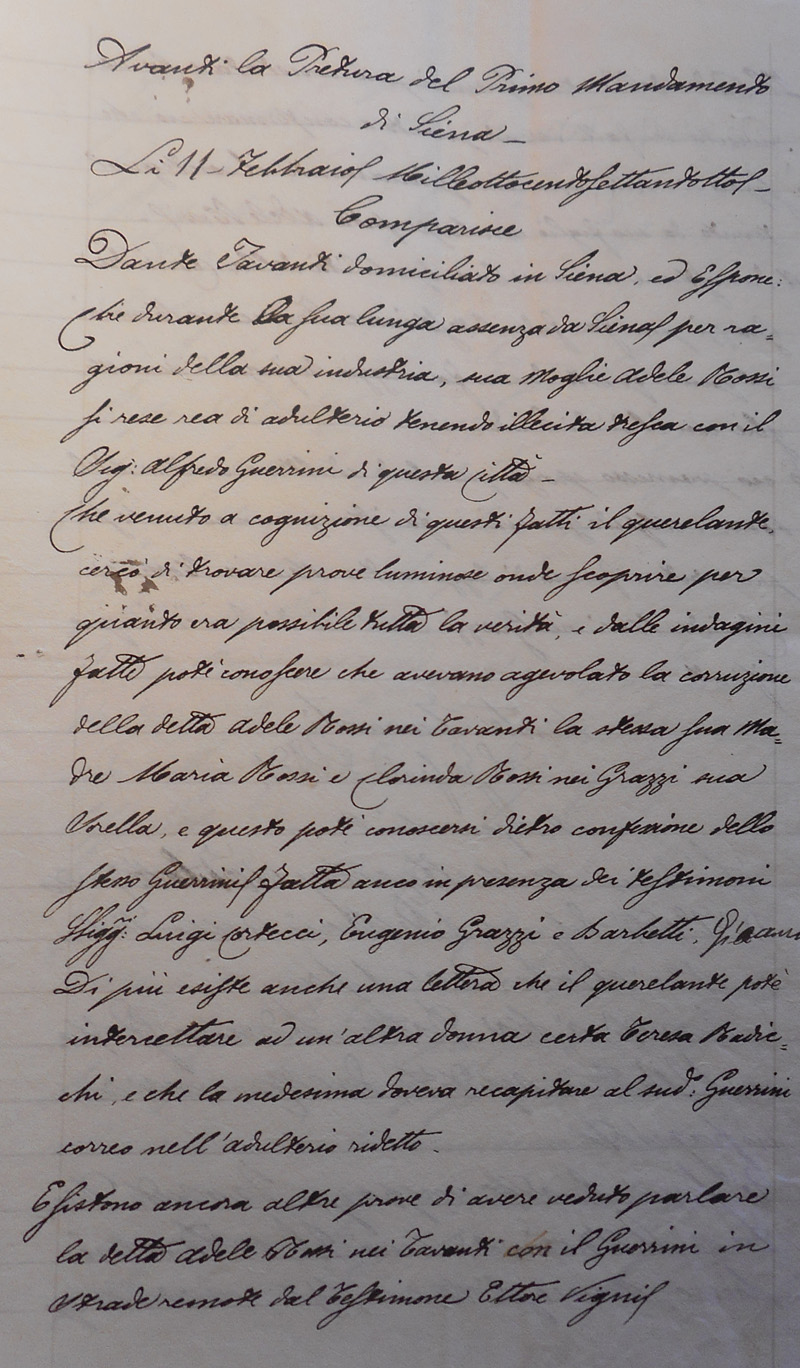 Avanti la Pretura del Primo Mandamento
di Siena –
Li 11 – Febbraio Milleottocentosettantotto –
Comparisce
Dante Tavanti domiciliato in Siena, ed Espone:
Che durante la sua lunga assenza da Siena per ra=
gioni della sua industria, sua Moglie Adele Rossi
si rese rea di adulterio tenendo illecita tresca con il
Sig: Alfredo Guerrini di questa Città –
Che venuto a cognizione di questi fatti il querelante,
cercò di trovare prove luminose onde scoprire per
quanto era possibile tutta la verità, e dalle indagini
fatte poté conoscere che avevano agevolato la corruzione
della detta Adele Rossi nei Tavanti la stessa sua Ma=
dre Maria Rossi e Clorinda Rossi nei Grazzi sua
Sorella, e questo poté conoscersi dietro confessione dello
stesso Guerrini fatta anco in presenza dei testimoni
Sigg:ri Luigi Cortecci, Eugenio Grazzi e Barbetti,
Di più esiste anche una lettera che il querelante potè
intercettare ad un'altra donna certa Teresa Radic=
chi, e che la medesima doveva recapitare al sud: Guerrini
correo nell'adulterio ridetto –
Esistono ancora altre prove di avere veduto parlare
la detta Adele Rossi nei Tavanti con il Guerrini in
Strade remote dal Testimone Ettore Vigni